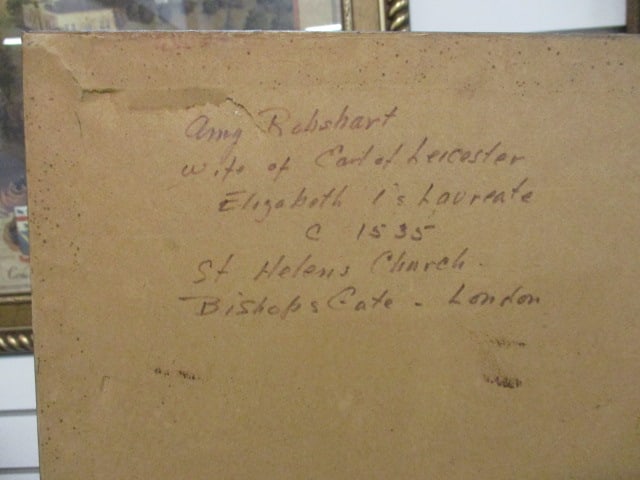 Amy Robshart
wife of Earl of Leicester
Elizabeth 1's Laureate
C 1535
St Helens Church.
BishopsGate - London